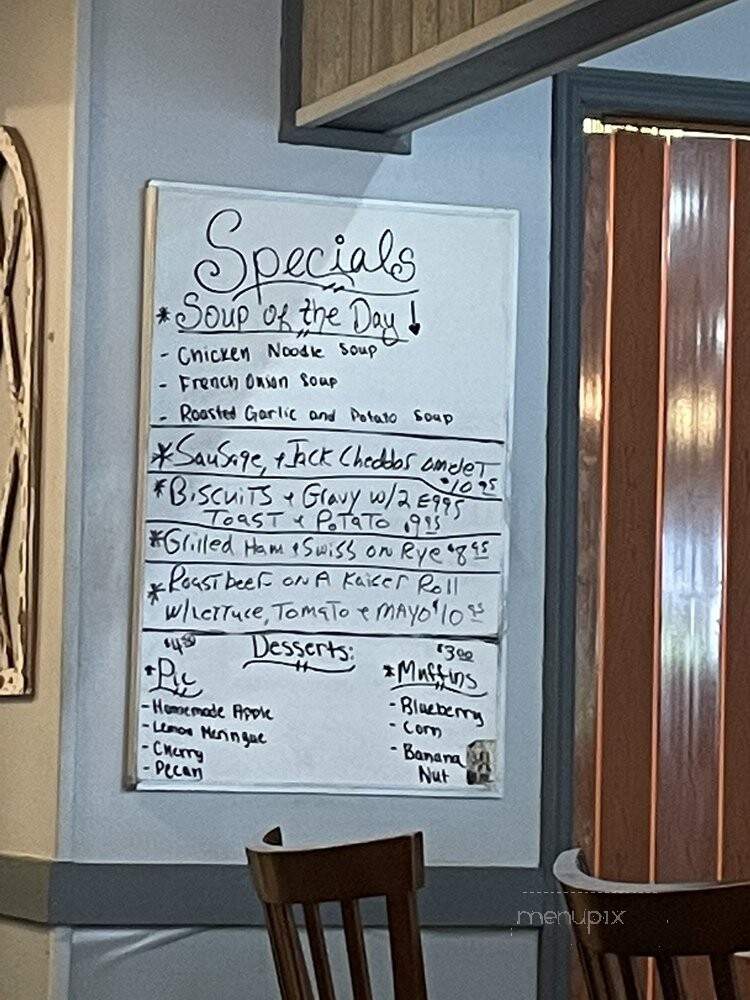 Specials
* Soup of the Day ↓
- Chicken Noodle Soup
- French Onion Soup
- Roasted Garlic and Potato Soup
* Sausage, + Jack Cheddar omelet
$10 95
* Biscuits + Gravy w/2 Eggs
Toast + Potato $9 95
* Grilled Ham + Swiss on Rye $8 95
* Roast beef on A Kaiser Roll
w/Lettuce, Tomato + MAYO $10 95
Desserts:
* Pie
- Homemade Apple
- Lemon Meringue
- Cherry
- Pecan
$3 00
* Muffins
- Blueberry
- Corn
- Banana
Nut
menupix